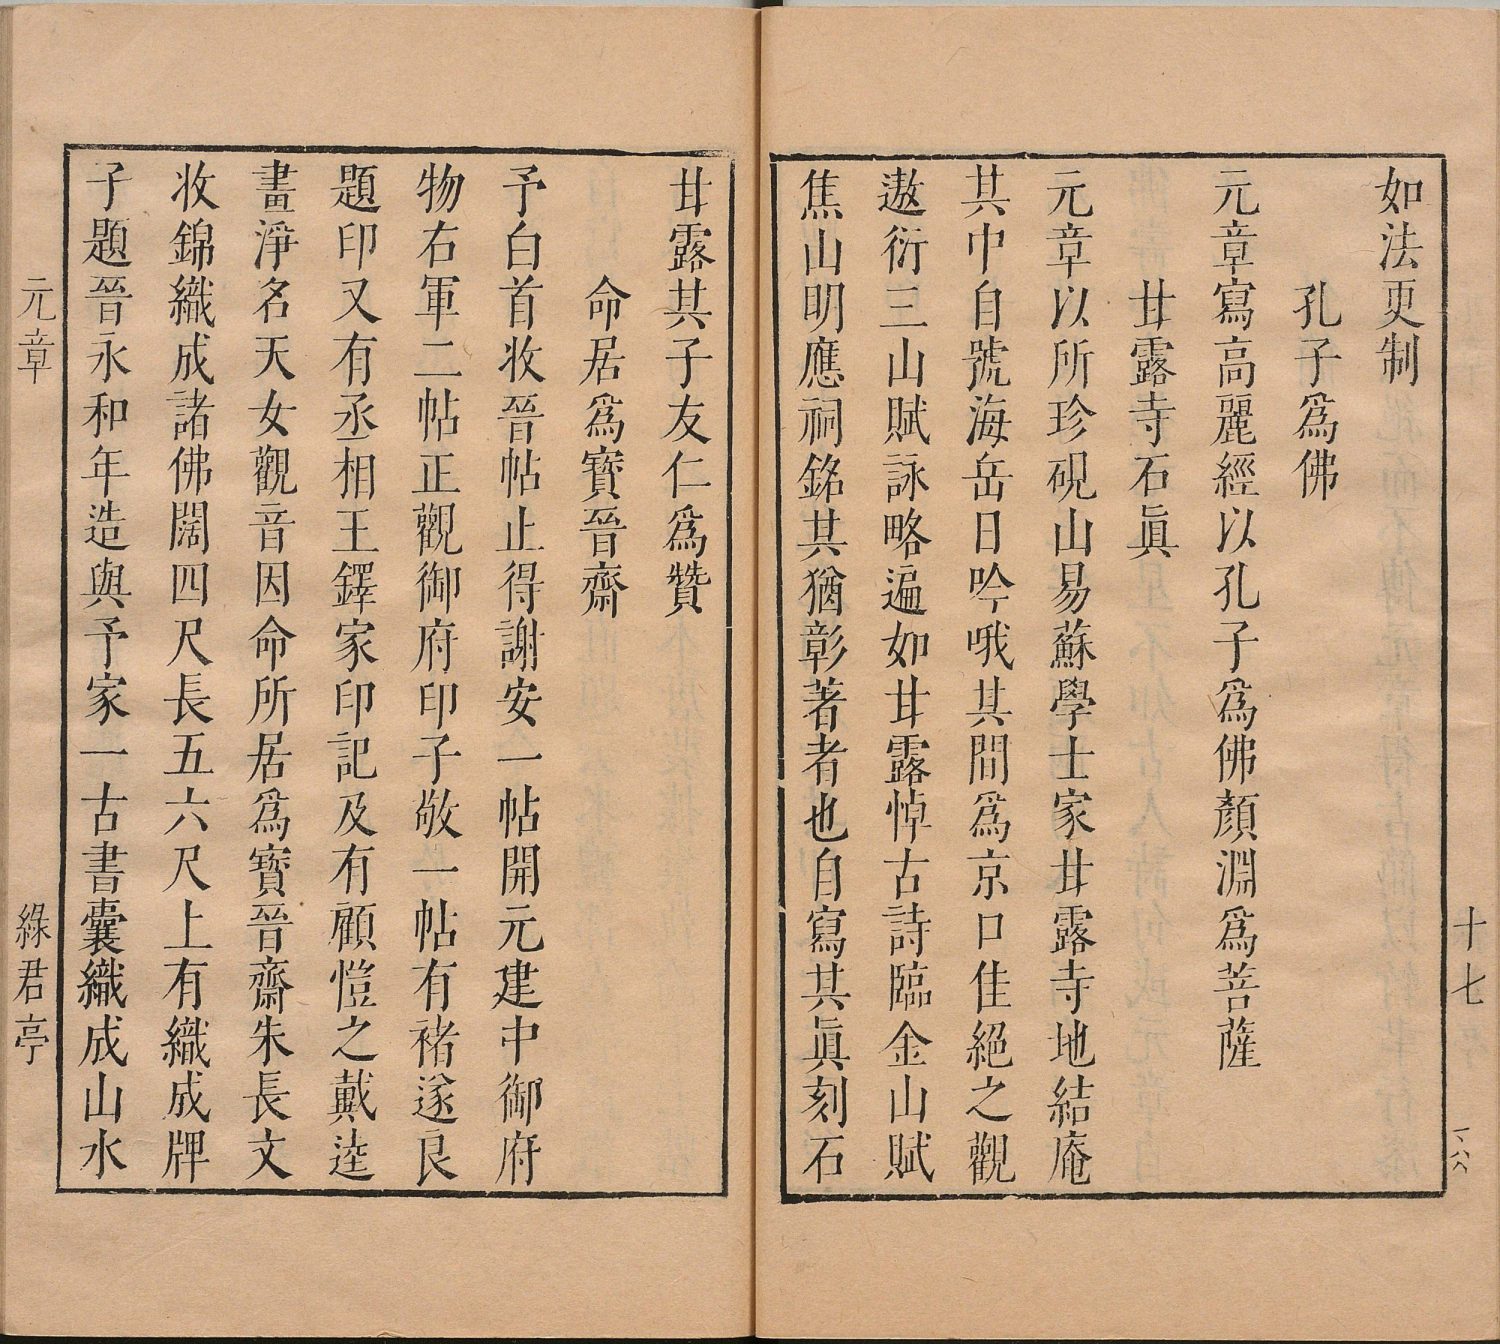 如法更制
孔子爲佛
元章寫高麗經以孔子爲佛顏淵爲菩薩
甘露寺石眞
元章以所珍硯山易蘇學士家甘露寺地結庵
其中自號海岳日吟哦其間爲京口佳絕之觀
遨衍三山賦詠略遍如甘露悼古詩臨金山賦
焦山明應祠銘其猶彰著者也自寫其眞刻石
十七
甘露其子友仁爲贊
命居爲寶晉齋
予白首收晉帖止得謝安一帖開元建中御府
物右軍二帖正觀御府印子敬一帖有褚遂良
題印又有丞相王鐸家印記及有顧愷之戴逵
畫淨名天女觀音因命所居爲寶晉齋朱長文
收錦織成諸佛闊四尺長五六尺上有織成牌
子題晉永和年造與予家一古書囊織成山水
元章
綠君亭